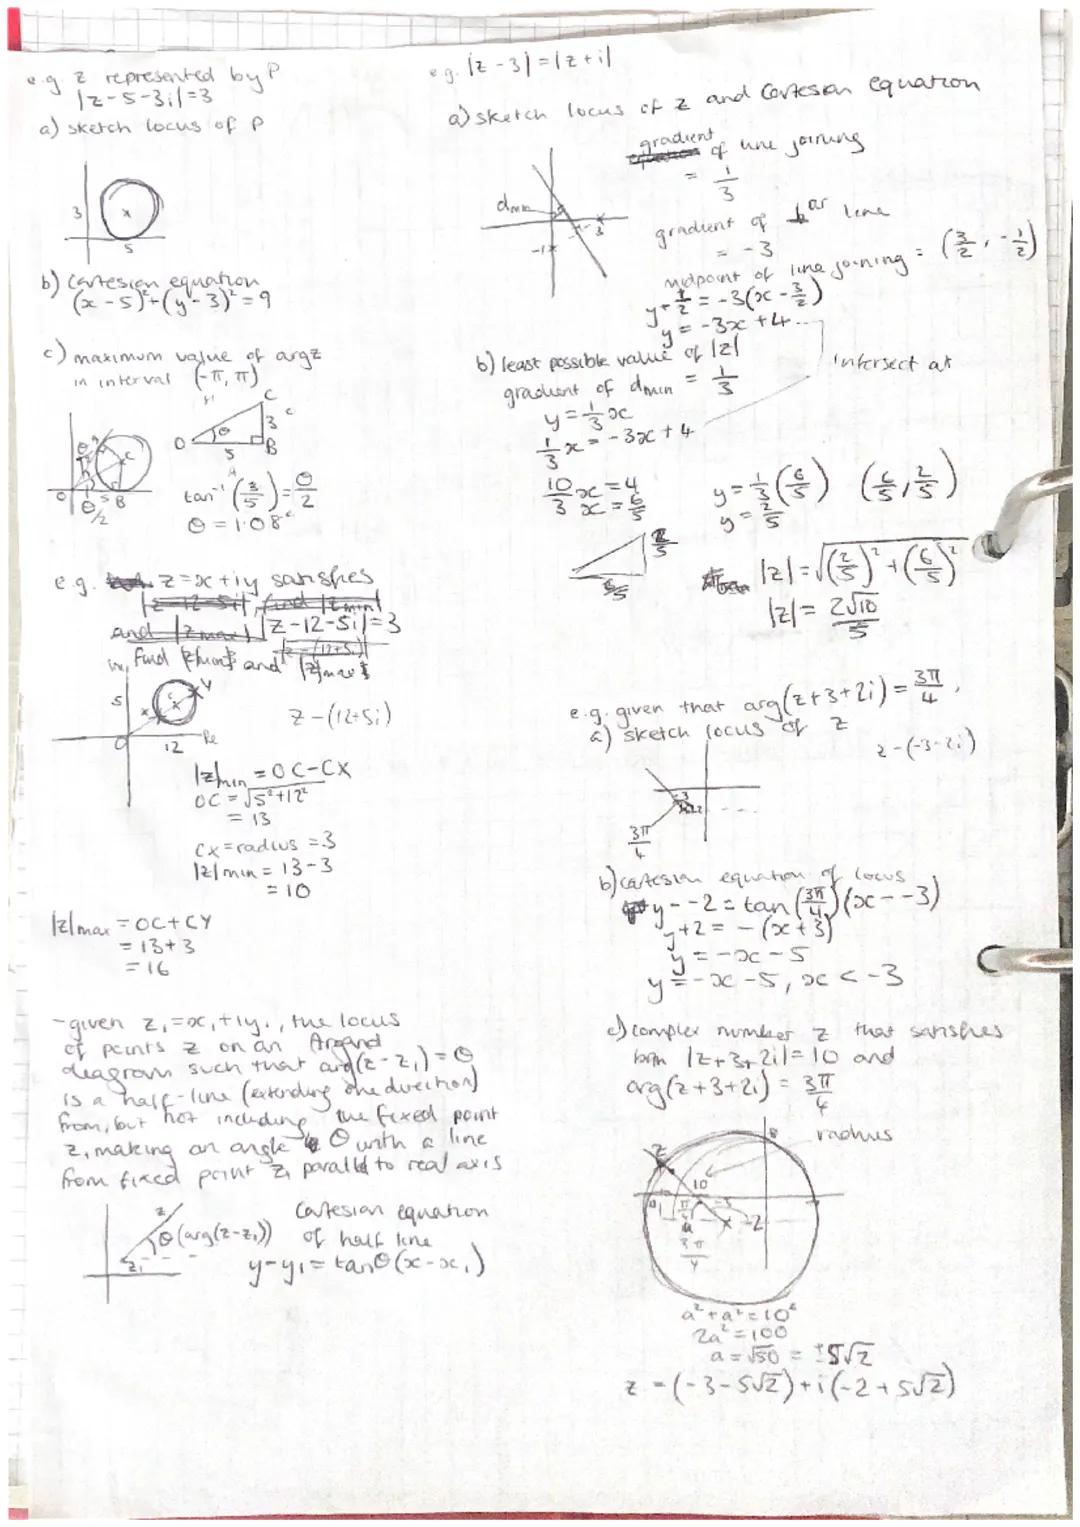 e.g. z represented by P
|z-5-3i|=3
a) sketch locus of P
3
5
b) Cartesian equation
(x-5)²+(y-3)²=9
c) maximum value of argz
in interval (-π, π)
C
3
O
θ
5
B
tan⁻¹(3/5) = θ/2
θ = 1.08ᶜ
e.g. z=x+iy satisfies
|z-12-5i|=3
find |z|min and |z|max
5
12
Re
z-(12+5i)
|z|min = OC-CX
OC = √5²+12²
= 13
CX = radius = 3
|z|min = 13-3
= 10
|z|max = OC+CY
= 13+3
= 16
-given z₁=x₁+iy₁, the locus
of points z on an Argand
diagram such that arg(z-z₁)=θ
is a half-line (extending one direction)
from, but not including, the fixed point
z₁ making an angle θ with a line
from fixed point z₁ parallel to real axis
z
θ(arg(z-z₁))
z₁
Cartesian equation
of half line
y-y₁ = tanθ(x-x₁)
e.g. |z-3|=|z+i|
a) sketch locus of z and Cartesian equation
dmin
3
-1
gradient of line joining
= 1/3
gradient of ⊥ar line
= -3
midpoint of line joining = (3/2, -1/2)
y+1/2 = -3(x-3/2)
y = -3x+4
b) least possible value of |z|
intersect at
gradient of dmin = 1/3
y = 1/3x
1/3x = -3x+4
10/3x = 4
x = 6/5
y = 1/3(6/5)
y = 2/5
(6/5, 2/5)
2/5
6/5
|z| = √(2/5)²+(6/5)²
|z| = 2√10/5
e.g. given that arg(z+3+2i) = 3π/4,
a) sketch locus of z
z-(-3-2i)
3π/4
b) cartesian equation of locus
y--2 = tan(3π/4)(x--3)
y+2 = -(x+3)
y = -x-5
y = -x-5, x < -3
c) complex number z that satisfies
both |z+3+2i|=10 and
arg(z+3+2i) = 3π/4
radius
z
10
-3
-2
3π/4
a²+a²=10²
2a²=100
a=√50 = ±5√2
z = (-3-5√2)+i(-2+5√2)